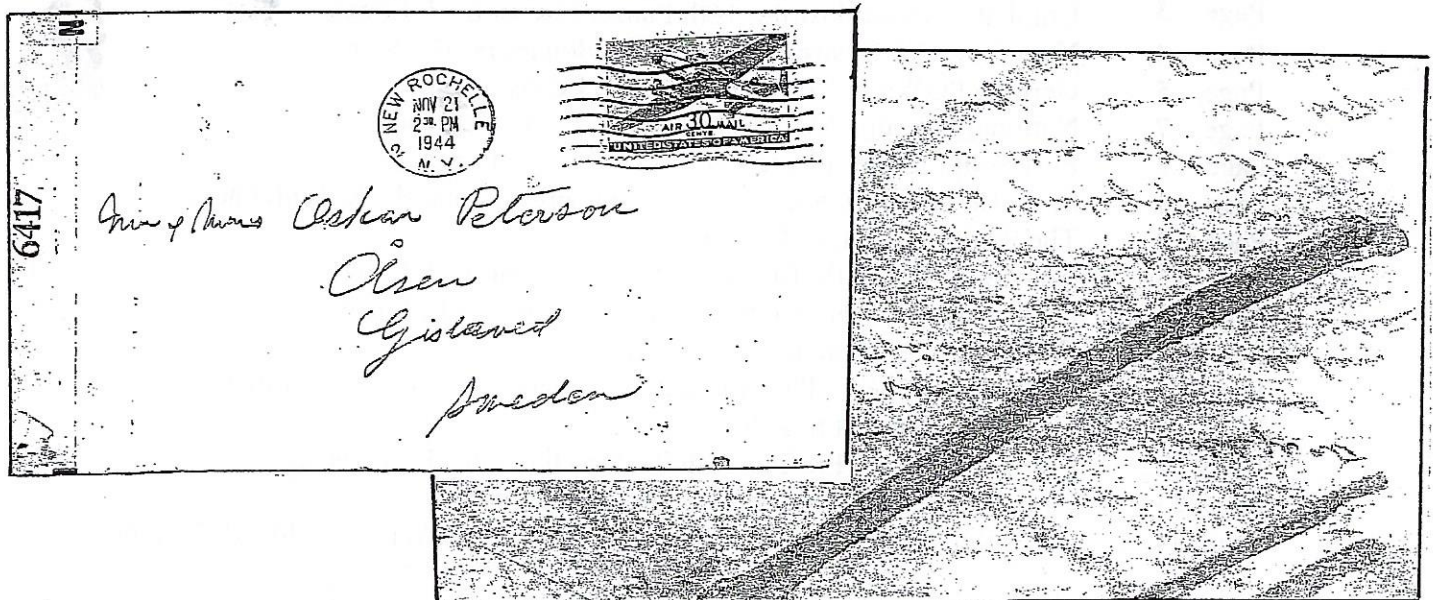 NEW ROCHELLE
2
NOV 21
2³⁰ PM
1944
N.Y.
AIR 30 MAIL
CENTS
UNITED STATES OF AMERICA
6417
Mr & Mrs Oskar Peterson
Åsen
Gislaved
Sweden